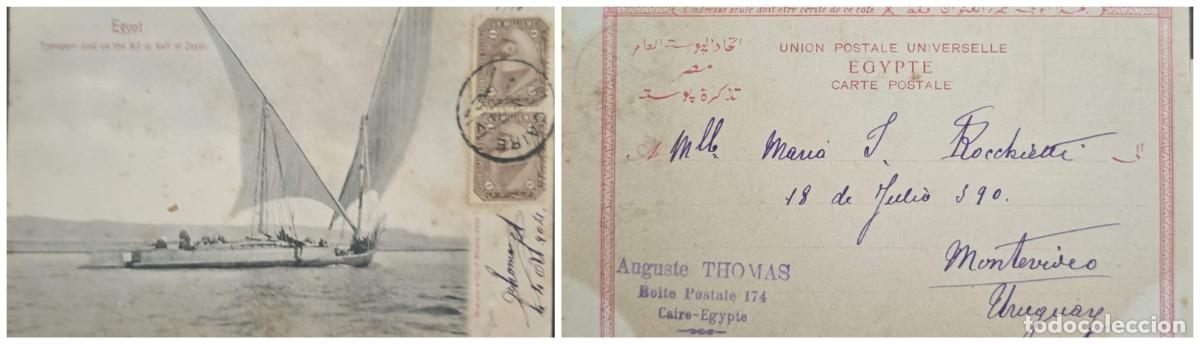 Egypt
Transport-boat on the Nil at Kafr el Zayat.
UN MILLIEME
CAIRE
UN MILLIEME
AThomas
904
L'adresse seule doit être écrite de ce côté
UNION POSTALE UNIVERSELLE
اتحاد البوستة العام
EGYPTE
مصر
CARTE POSTALE
تذكرة بوستة
A Mlle Maria J. Rocchietti الى
18 de Julio 390.
Montevideo
Uruguay
Auguste THOMAS
Boite Postale 174
Caire-Egypte
todocoleccion